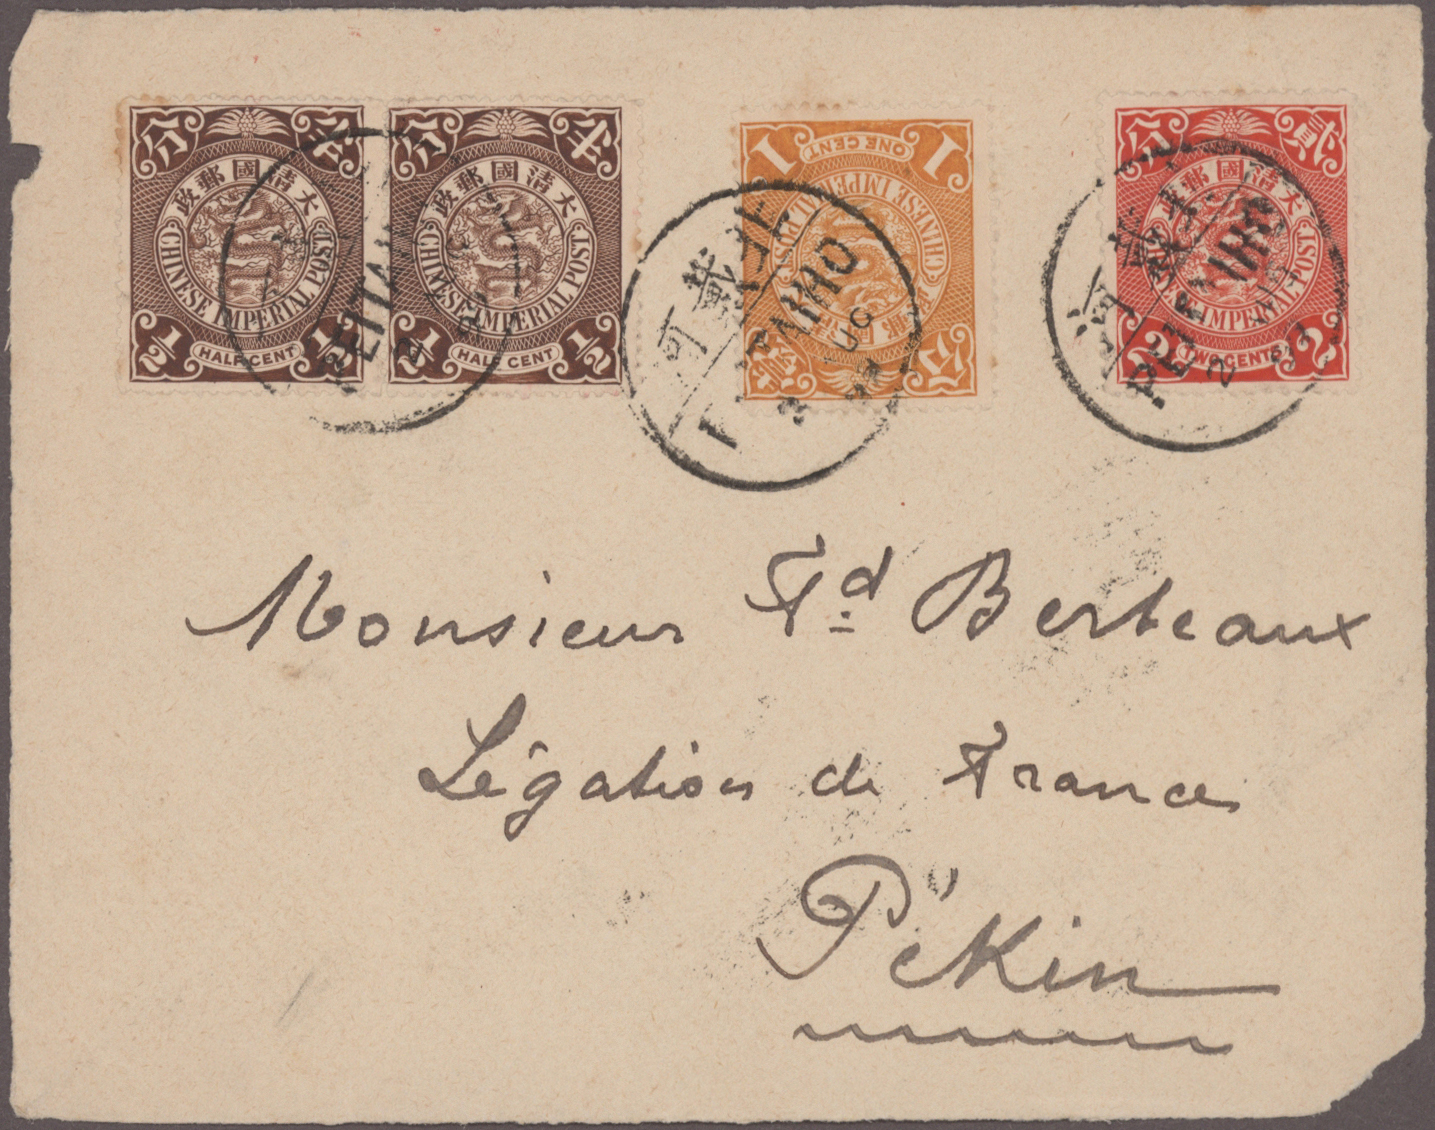 分 半 分 半
大清國郵政 大清國郵政
CHINESE IMPERIAL POST CHINESE IMPERIAL POST
½ HALF CENT ½ ½ HALF CENT ½
1 ONE CENT 1
CHINESE IMPERIAL POST
分 貳
大清國郵政
CHINESE IMPERIAL POST
2 TWO CENTS 2
PEITAIHO
2
PEITAIHO
3
PEITAIHO
2
Monsieur Fd Berteaux
Légation de France
Pékin